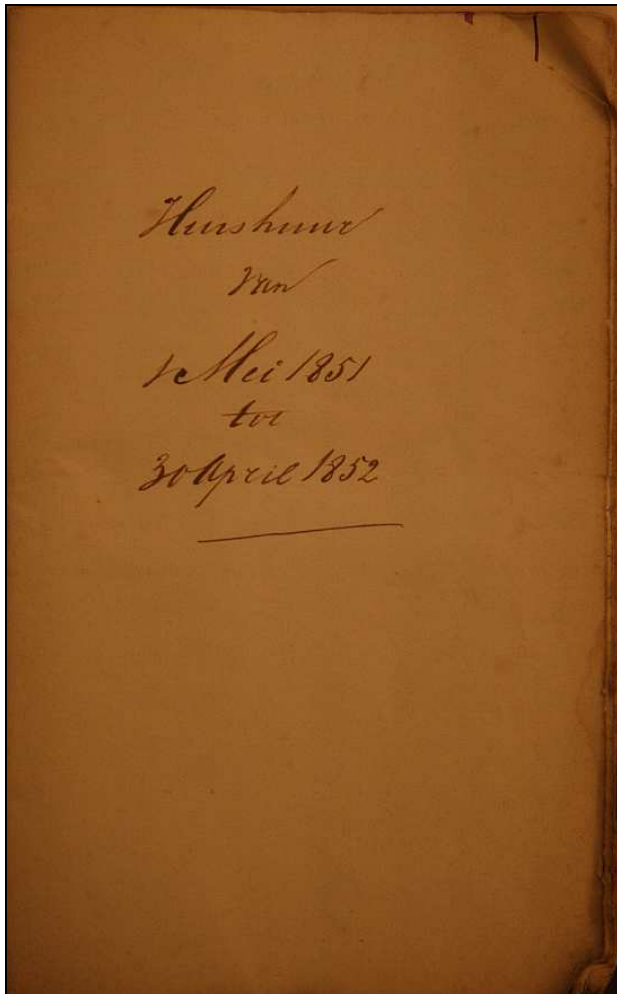 Huishuur
van
1e Mei 1851
tot
30 April 1852